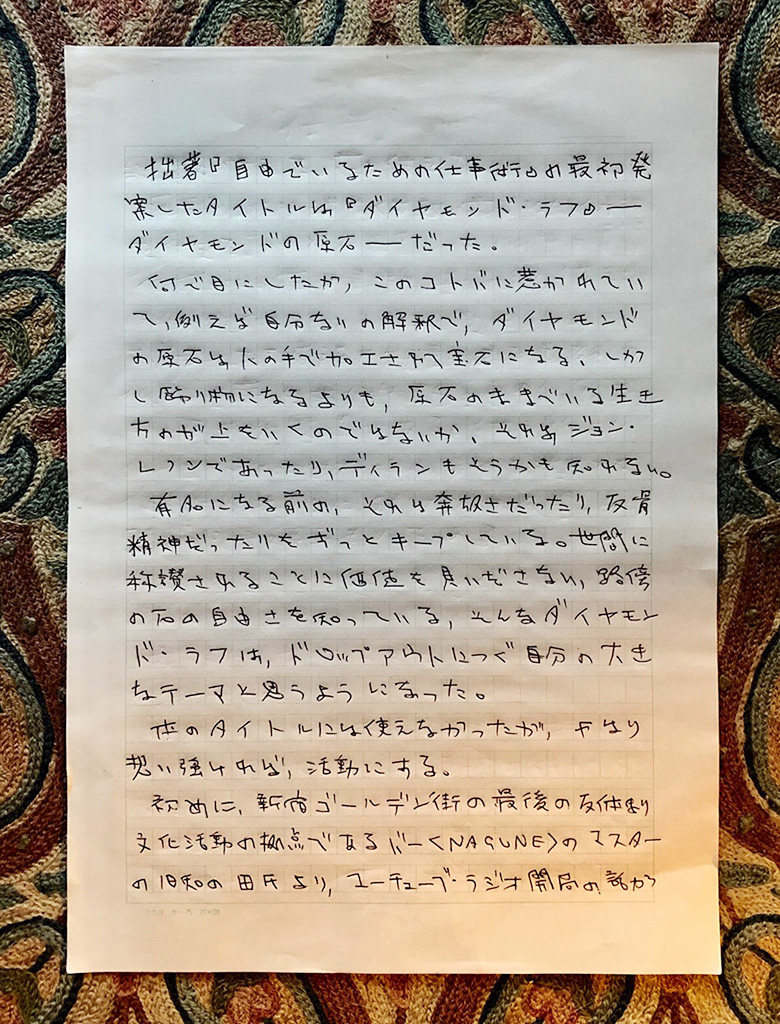 拙著『自由でいるための仕事術』の最初発
案したタイトルは『ダイヤモンド・ラフ』―
ダイヤモンドの原石―だった。
何で目にしたか、このコトバに惹かれてい
て、例えば自分ないの解釈で、ダイヤモンド
の原石は人の手で加工されて宝石になる、しか
し飾り物になるよりも、原石のままでいる生き
ものが上をいくのではないか、それはジョン・
レノンであったり、ディランもそうかも知れない。
有名になる前の、それは奔放さだったり、反骨
精神だったりをずっとキープしている。世間に
称讃されることに価値を見いださない、路傍
の石の自由さを知っている、そんなダイヤモン
ド・ラフは、ドロップアウトにつぐ自分の大き
なテーマと思うようになった。
本のタイトルには使えなかったが、やはり
想い強ければ、活動にする。
初めに、新宿ゴールデン街の最後の反体制
文化活動の拠点であるバー〈NAGUNE〉のマスター
の旧知の田氏より、ユーチューブ・ラジオ開局の話が